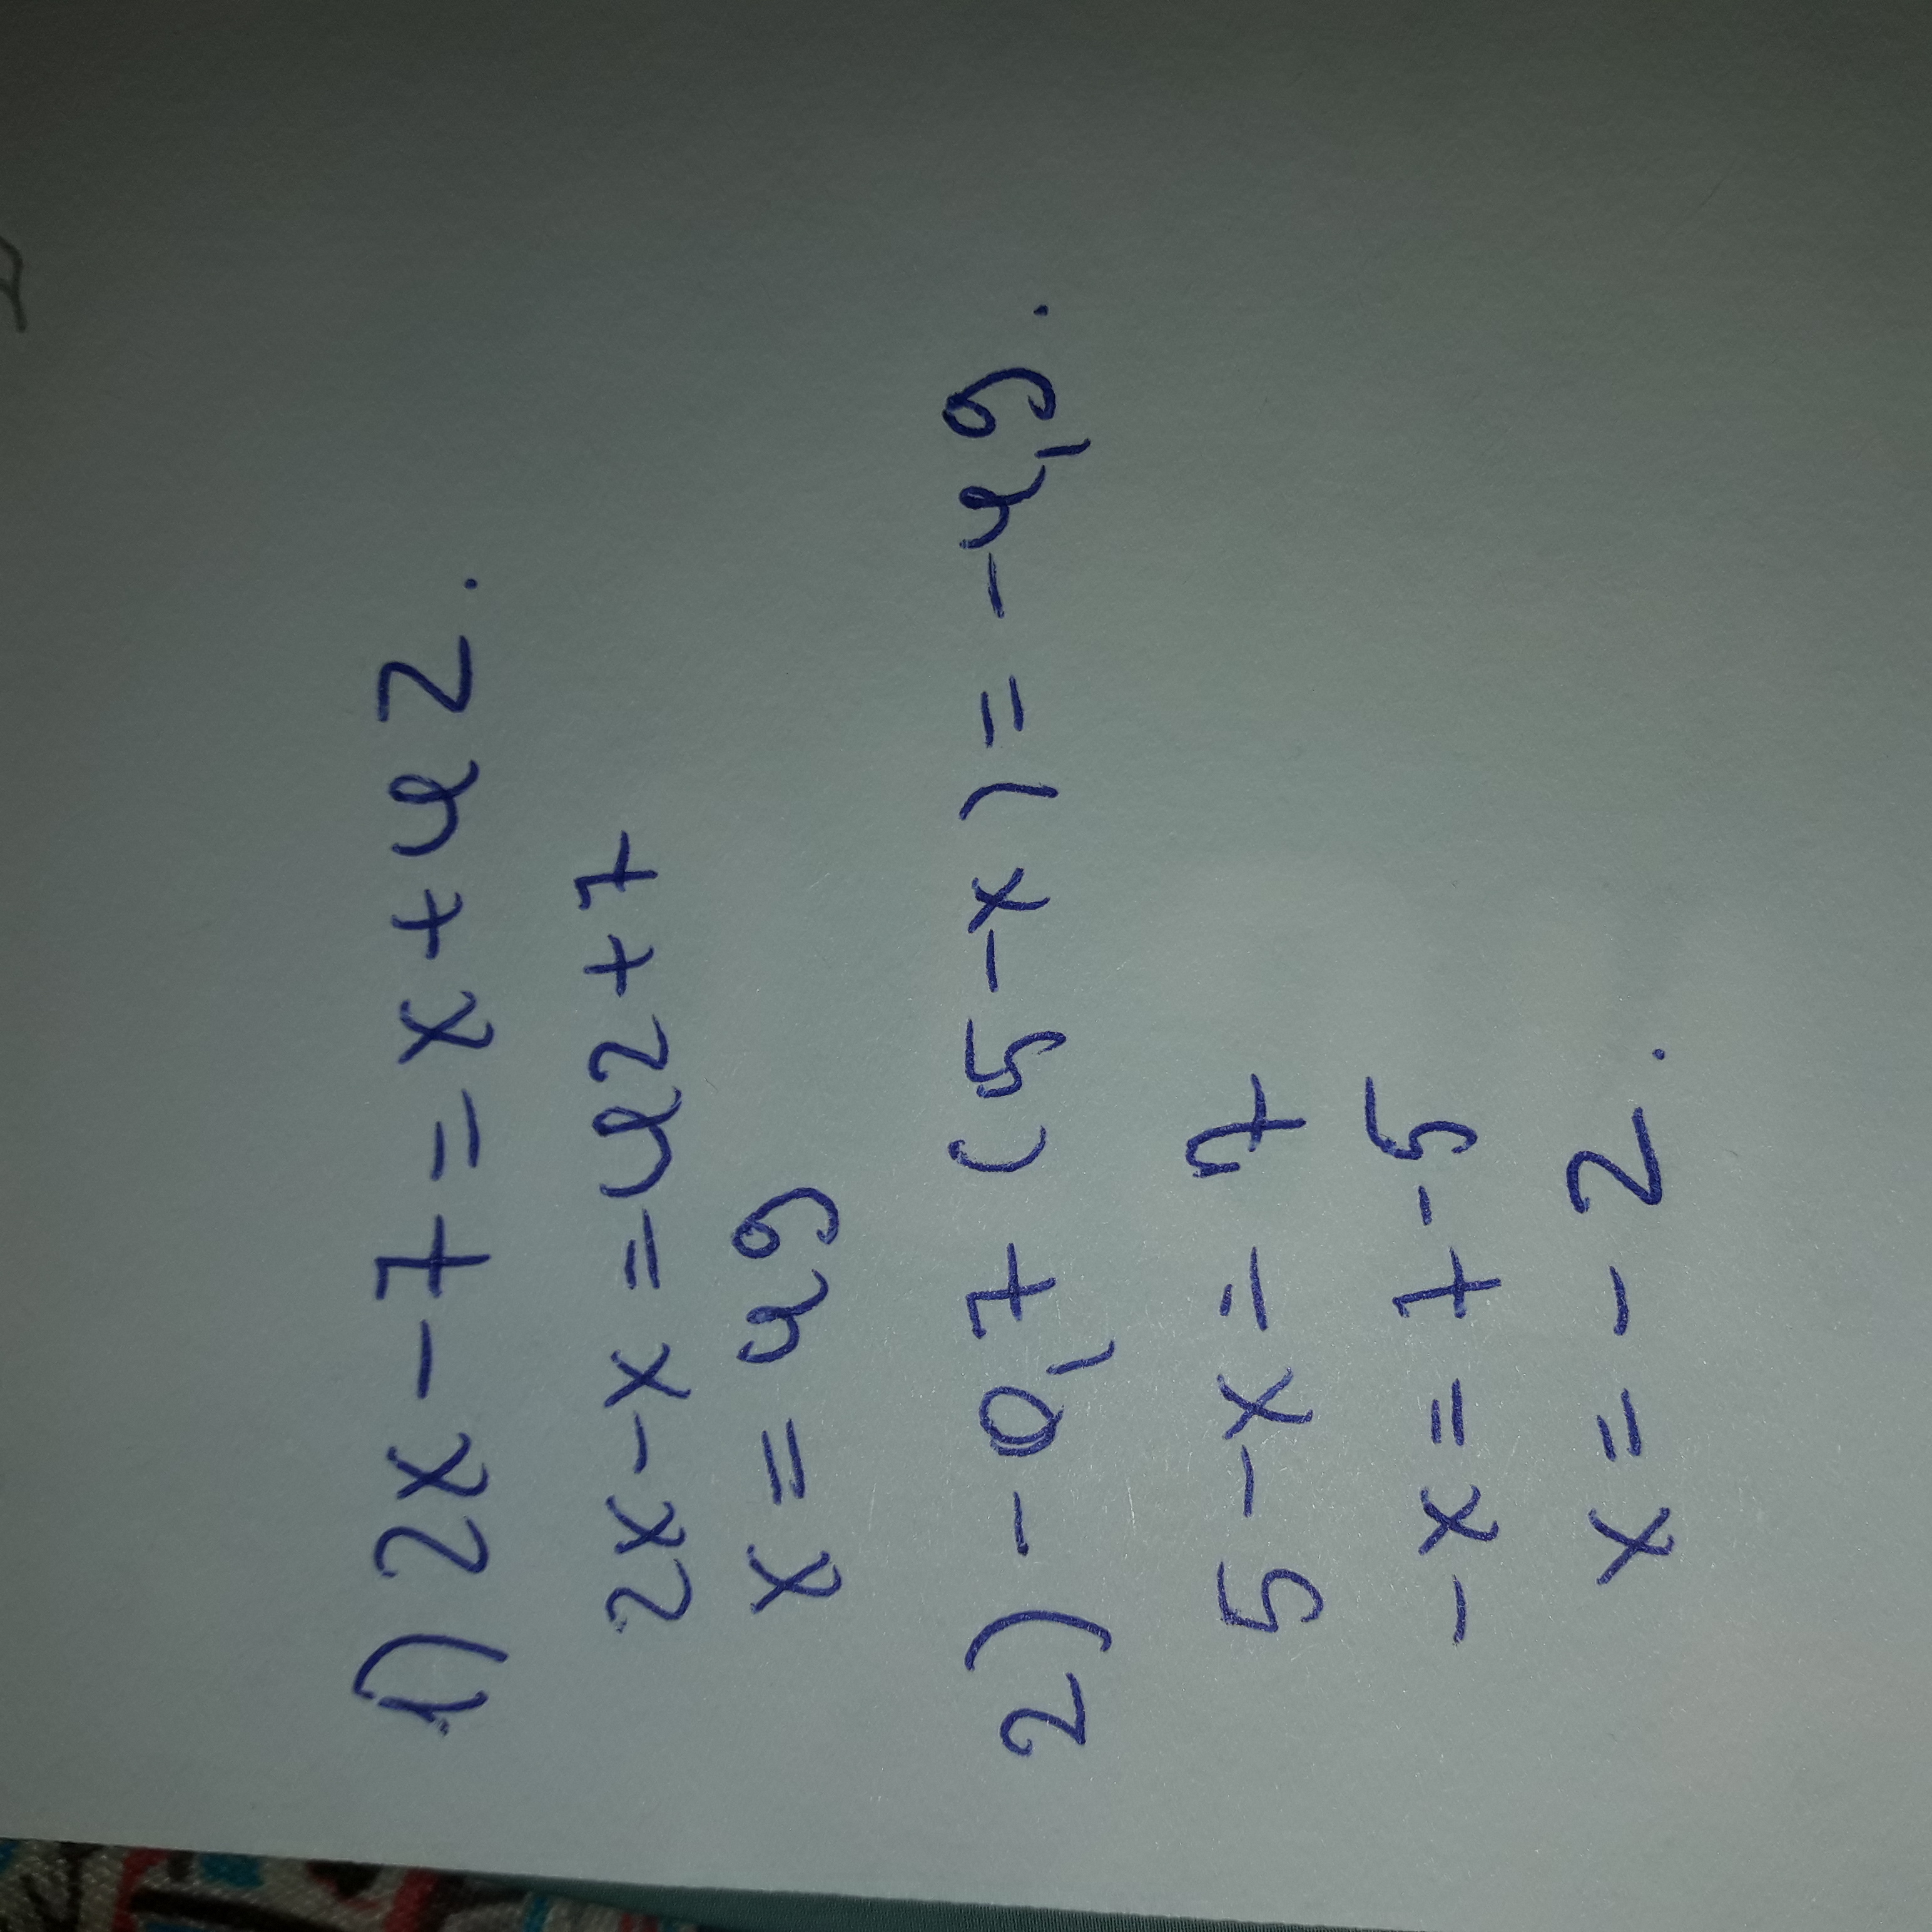 1) 2x - 7 = x + 42.
2x - x = 42 + 7
x = 49
2) - 0,7 (5 - x) = - 4,9.
5 - x = 7
- x = 7 - 5
x = - 2.